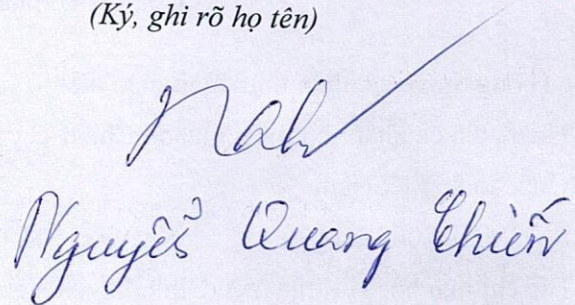 (Ký, ghi rõ họ tên)
Nguyễn Quang Chiến